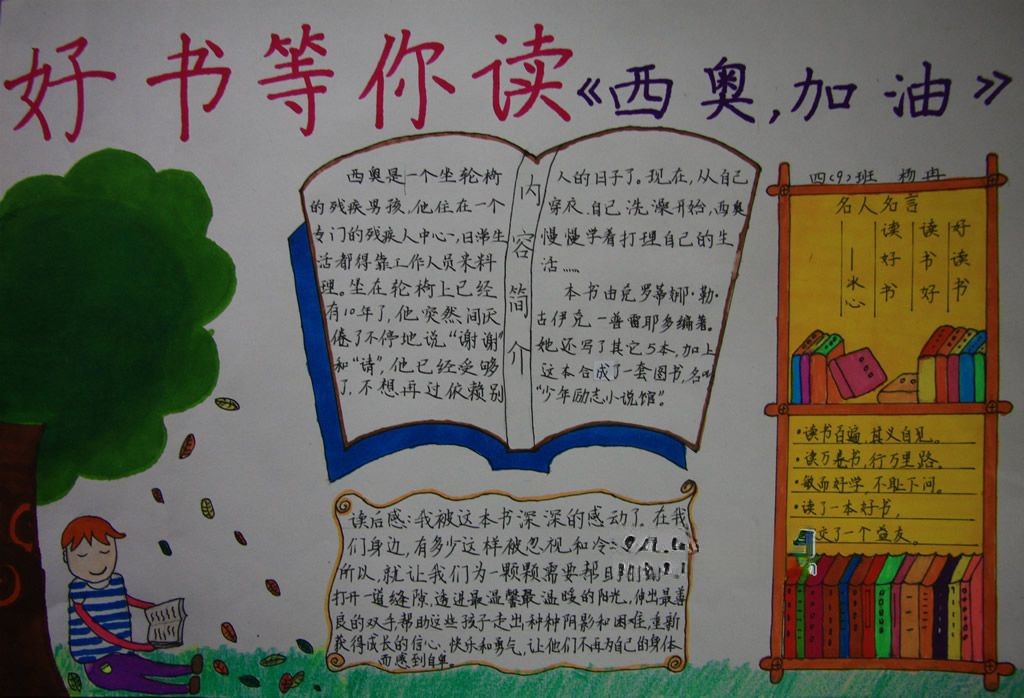 好书等你读《西奥,加油》
西奥是一个坐轮椅
的残疾男孩,他住在一个
专门的残疾人中心,日常生
活都得靠工作人员来料
理。坐在轮椅上已经
有10年了,他突然间厌
倦了不停地说“谢谢”
和“请”,他已经受够
了,不想再过依赖别
内容简介
人的日子了。现在,从自己
穿衣、自己洗澡开始,西奥
慢慢学着打理自己的生
活……
本书由克罗蒂娜·勒·
古伊克-普雷耶多编著。
她还写了其它5本,加上
这本合成了一套图书,名叫
“少年励志小说馆”。
四(9)班 杨冉
名人名言
好读书
读书好
读好书
——冰心
·读书百遍,其义自见。
·读万卷书,行万里路。
·敏而好学,不耻下问。
·读了一本好书,
交了一个益友。
读后感:我被这本书深深的感动了。在我
们身边,有多少这样被忽视和冷
所以,就让我们为一颗颗需要帮
打开一道缝隙,透进最温馨最温暖的阳光,伸出最善
良的双手帮助这些孩子走出种种阴影和困难,重新
获得成长的信心、快乐和勇气,让他们不再为自己的身体
而感到自卑。